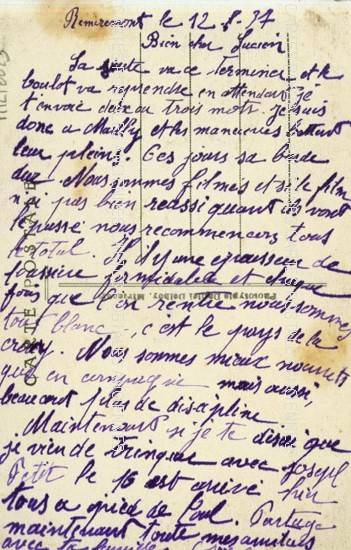 Remiremont le 12 - 8 - 37
Bien cher Lucien
La suite va se terminer et le
boulot va reprendre en attendant je
t'envoie deux ou trois mots. Je suis
donc a Mailly et les manoeuvres battent
leur plein. Ces jours sa barde
dur. Nous sommes filmés et si le film
n'a pas bien reussi quant ils vont
le passé nous recommencerons tous
le total. Il y a une épaisseur de
poussière formidable et chaque
fois que l'on rentre nous sommes
tout blanc, c'est le pays de la
craie. Nous sommes mieux nourrits
qu'en compagnie mais aussi
beaucout plus de discipline
Maintenant si je te disai que
je vien de trinqué avec Joseph
Petit le 16 est arrivé hier
tous a pied de Partage
maintenant toute mes amitiers
avec
CARTE POSTALE